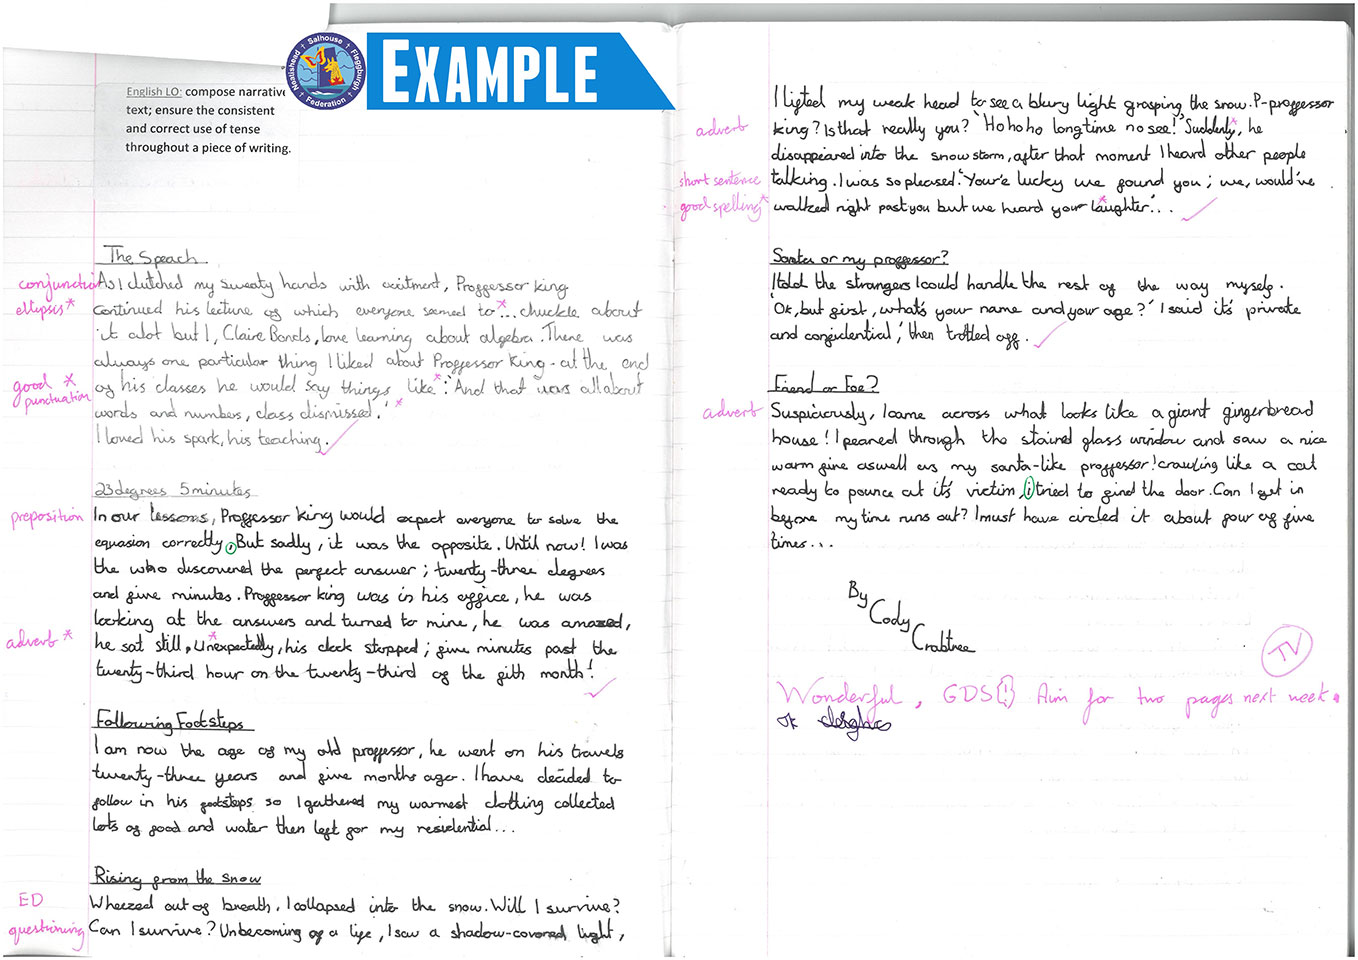 Nealishead Salhouse Fleggburgh
Federation
EXAMPLE
English LO: compose narrative
text; ensure the consistent
and correct use of tense
throughout a piece of writing.
The Speach
conjunction
As I clutched my sweaty hands with excitment, Proffessor King
ellypsis*
continued his lecture of which everyone seemed to*... chuckle about
it alot but I, Claire Bonds, love learning about algebra. There was
always one particular thing I liked about Proffessor King - at the end
good * punctuation
of his classes he would say things like*: 'And that was all about
words and numbers, class dismissed.'*
I loved his spark, his teaching.
23 degrees 5 minutes
preposition
In our lessons, Proffessor King would expect everyone to solve the
equasion correctly, But sadly, it was the opposite. Until now! I was
the who discovered the perfect answer; twenty-three degrees
and five minutes. Proffessor King was in his office, he was
looking at the answers and turned to mine, he was amazed,
adverb *
he sat still, Unexpectedly, his clock stopped; five minutes past the
twenty-third hour on the twenty-third of the fith month!
Following Footsteps
I am now the age of my old proffessor, he went on his travels
twenty-three years and five months ago. I have decided to
follow in his footsteps so I gathered my warmest clothing collected
lots of food and water then left for my residential...
Rising from the snow
ED
Wheezed out of breath, I collapsed into the snow. Will I survive?
questioning
Can I survive? Unbecoming of a life, I saw a shadow-covered light,
I lifted my weak head to see a blury light grasping the snow. P-proffessor
adverb
king? Is that really you? 'Ho ho ho long time no see!' Suddenly*, he
disappeared into the snow storm, after that moment I heard other people
short sentence
talking. I was so pleased. 'Your'e lucky we found you; we, would've
good spelling*
walked right past you but we heard your laughter'...
Santa or my proffessor?
I told the strangers I could handle the rest of the way myself.
'Ok, but first, what's your name and your age?' I said it's private
and confidential', then trotted off.
Friend or Foe?
adverb
Suspiciously, I came across what looks like a giant gingerbread
house! I peared through the stained glass window and saw a nice
warm fire aswell as my santa-like proffessor! crawling like a cat
ready to pounce at it's victim, i tried to find the door. Can I get in
before my time runs out? I must have circled it about four of five
times...
By
Cody
Crabtree
TV
Wonderful, GDS(!) Aim for two pages next week.
ok